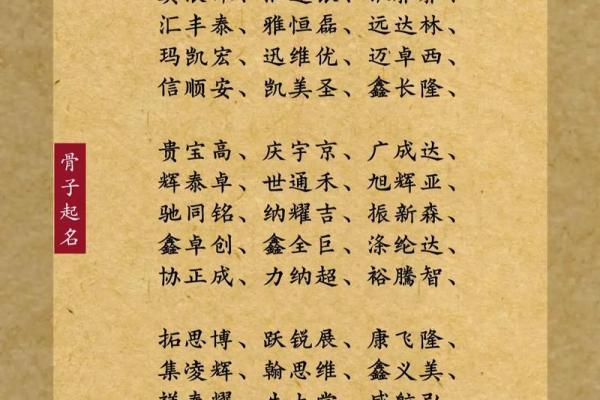 汇丰泰、雅恒磊、远达林、
玛凯宏、迅维优、迈卓西、
信顺安、凯美圣、鑫长隆、
贵宝高、庆宇京、广成达、
辉泰卓、世通禾、旭辉亚、
驰同铭、纳耀吉、振新森、
鑫卓创、鑫全巨、涤纶达、
协正成、力纳超、裕腾智、
拓思博、跃锐展、康飞隆、
集凌辉、翰思维、鑫义美、
骨子起名